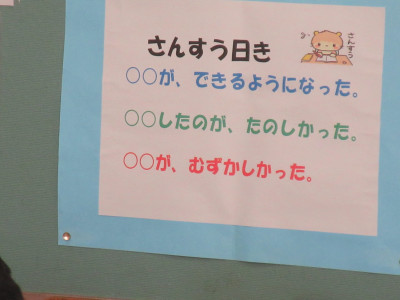 さんすう日き
さんすう
○○が、できるようになった。
○○したのが、たのしかった。
○○が、むずかしかった。